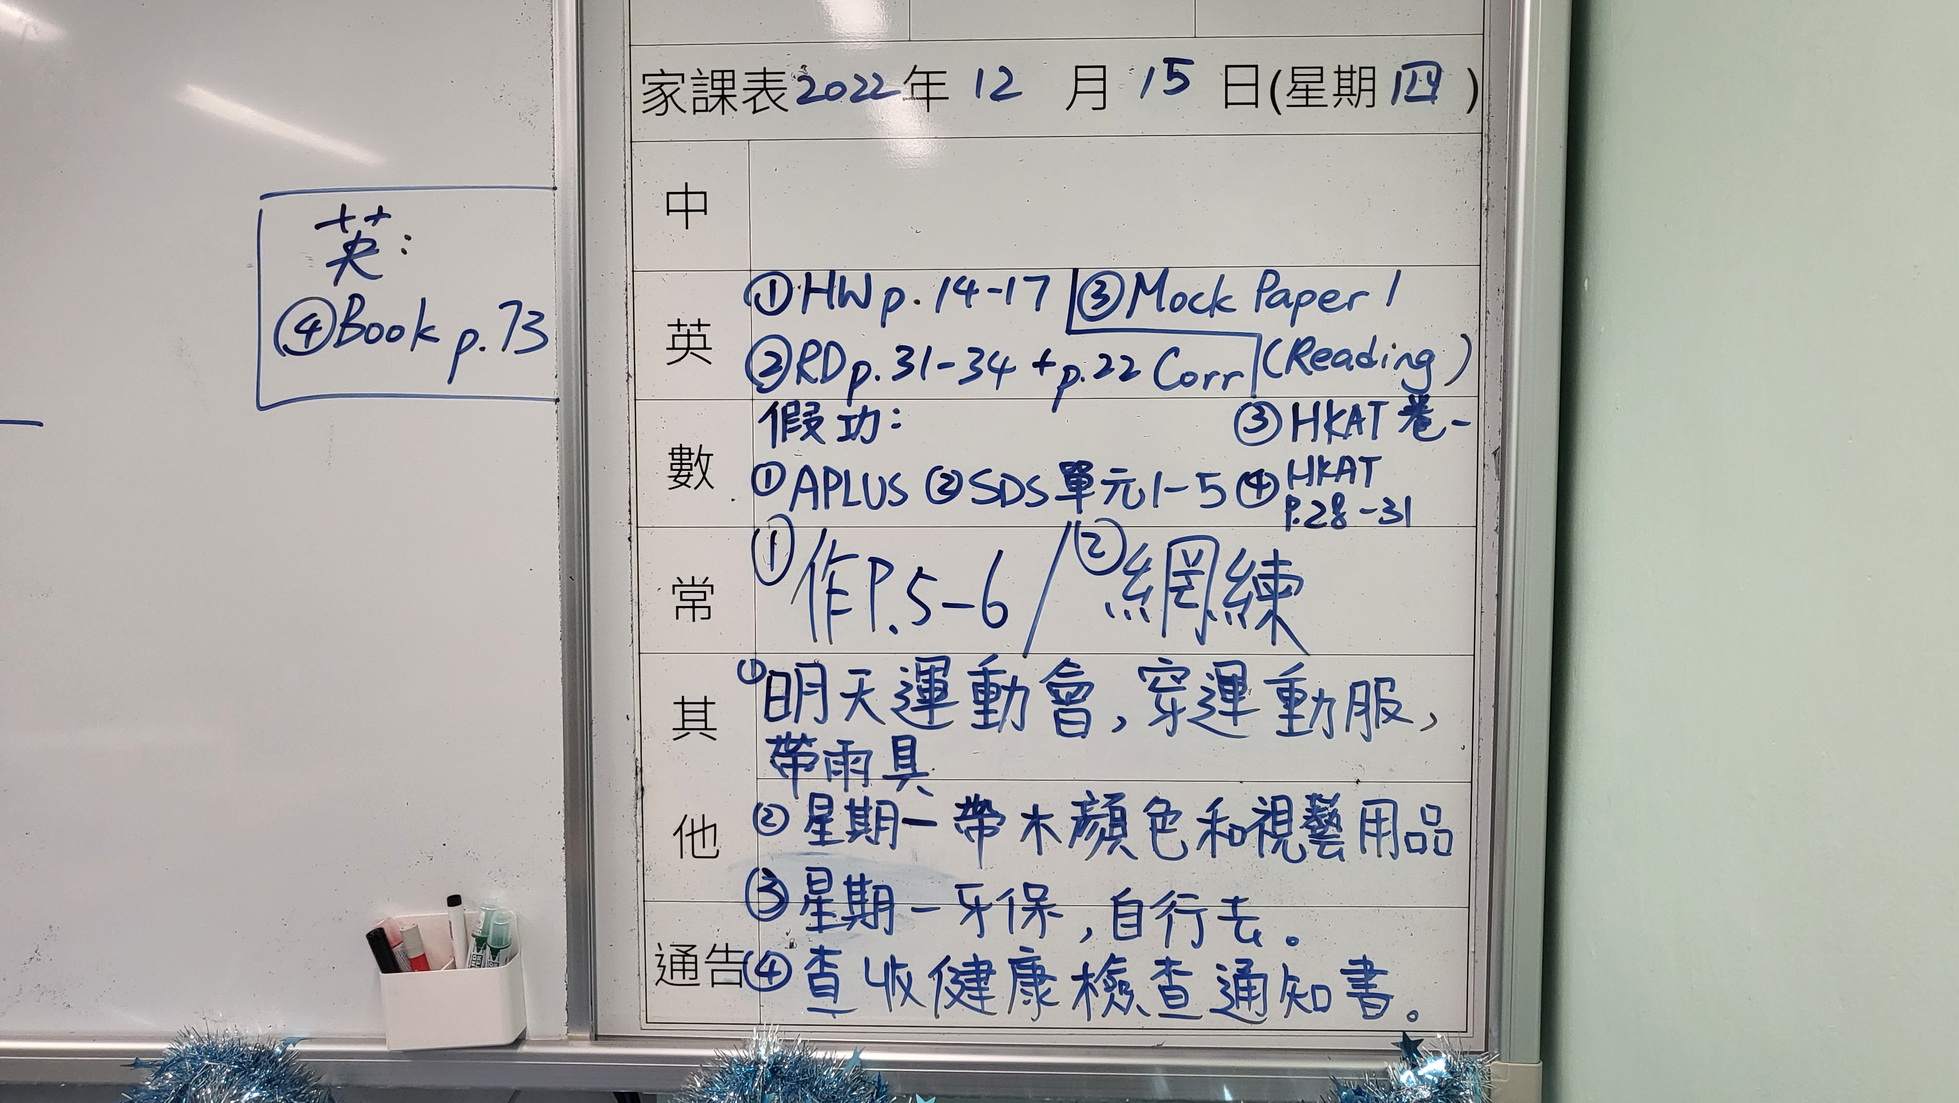 家課表2022年 12 月 15 日(星期四)
中
英
①HW p. 14-17 ③Mock Paper 1
②RD p. 31-34 + p.22 Corr (Reading)
英:
④Book p.73
數
假功: ③HKAT 卷一
①APLUS ②SDS單元1-5 ④HKAT
P.28-31
常
①作P.5-6 / ②網練
其他
①明天運動會,穿運動服,
帶雨具
②星期一帶木顏色和視藝用品
③星期一牙保,自行去。
通告
④查收健康檢查通知書。